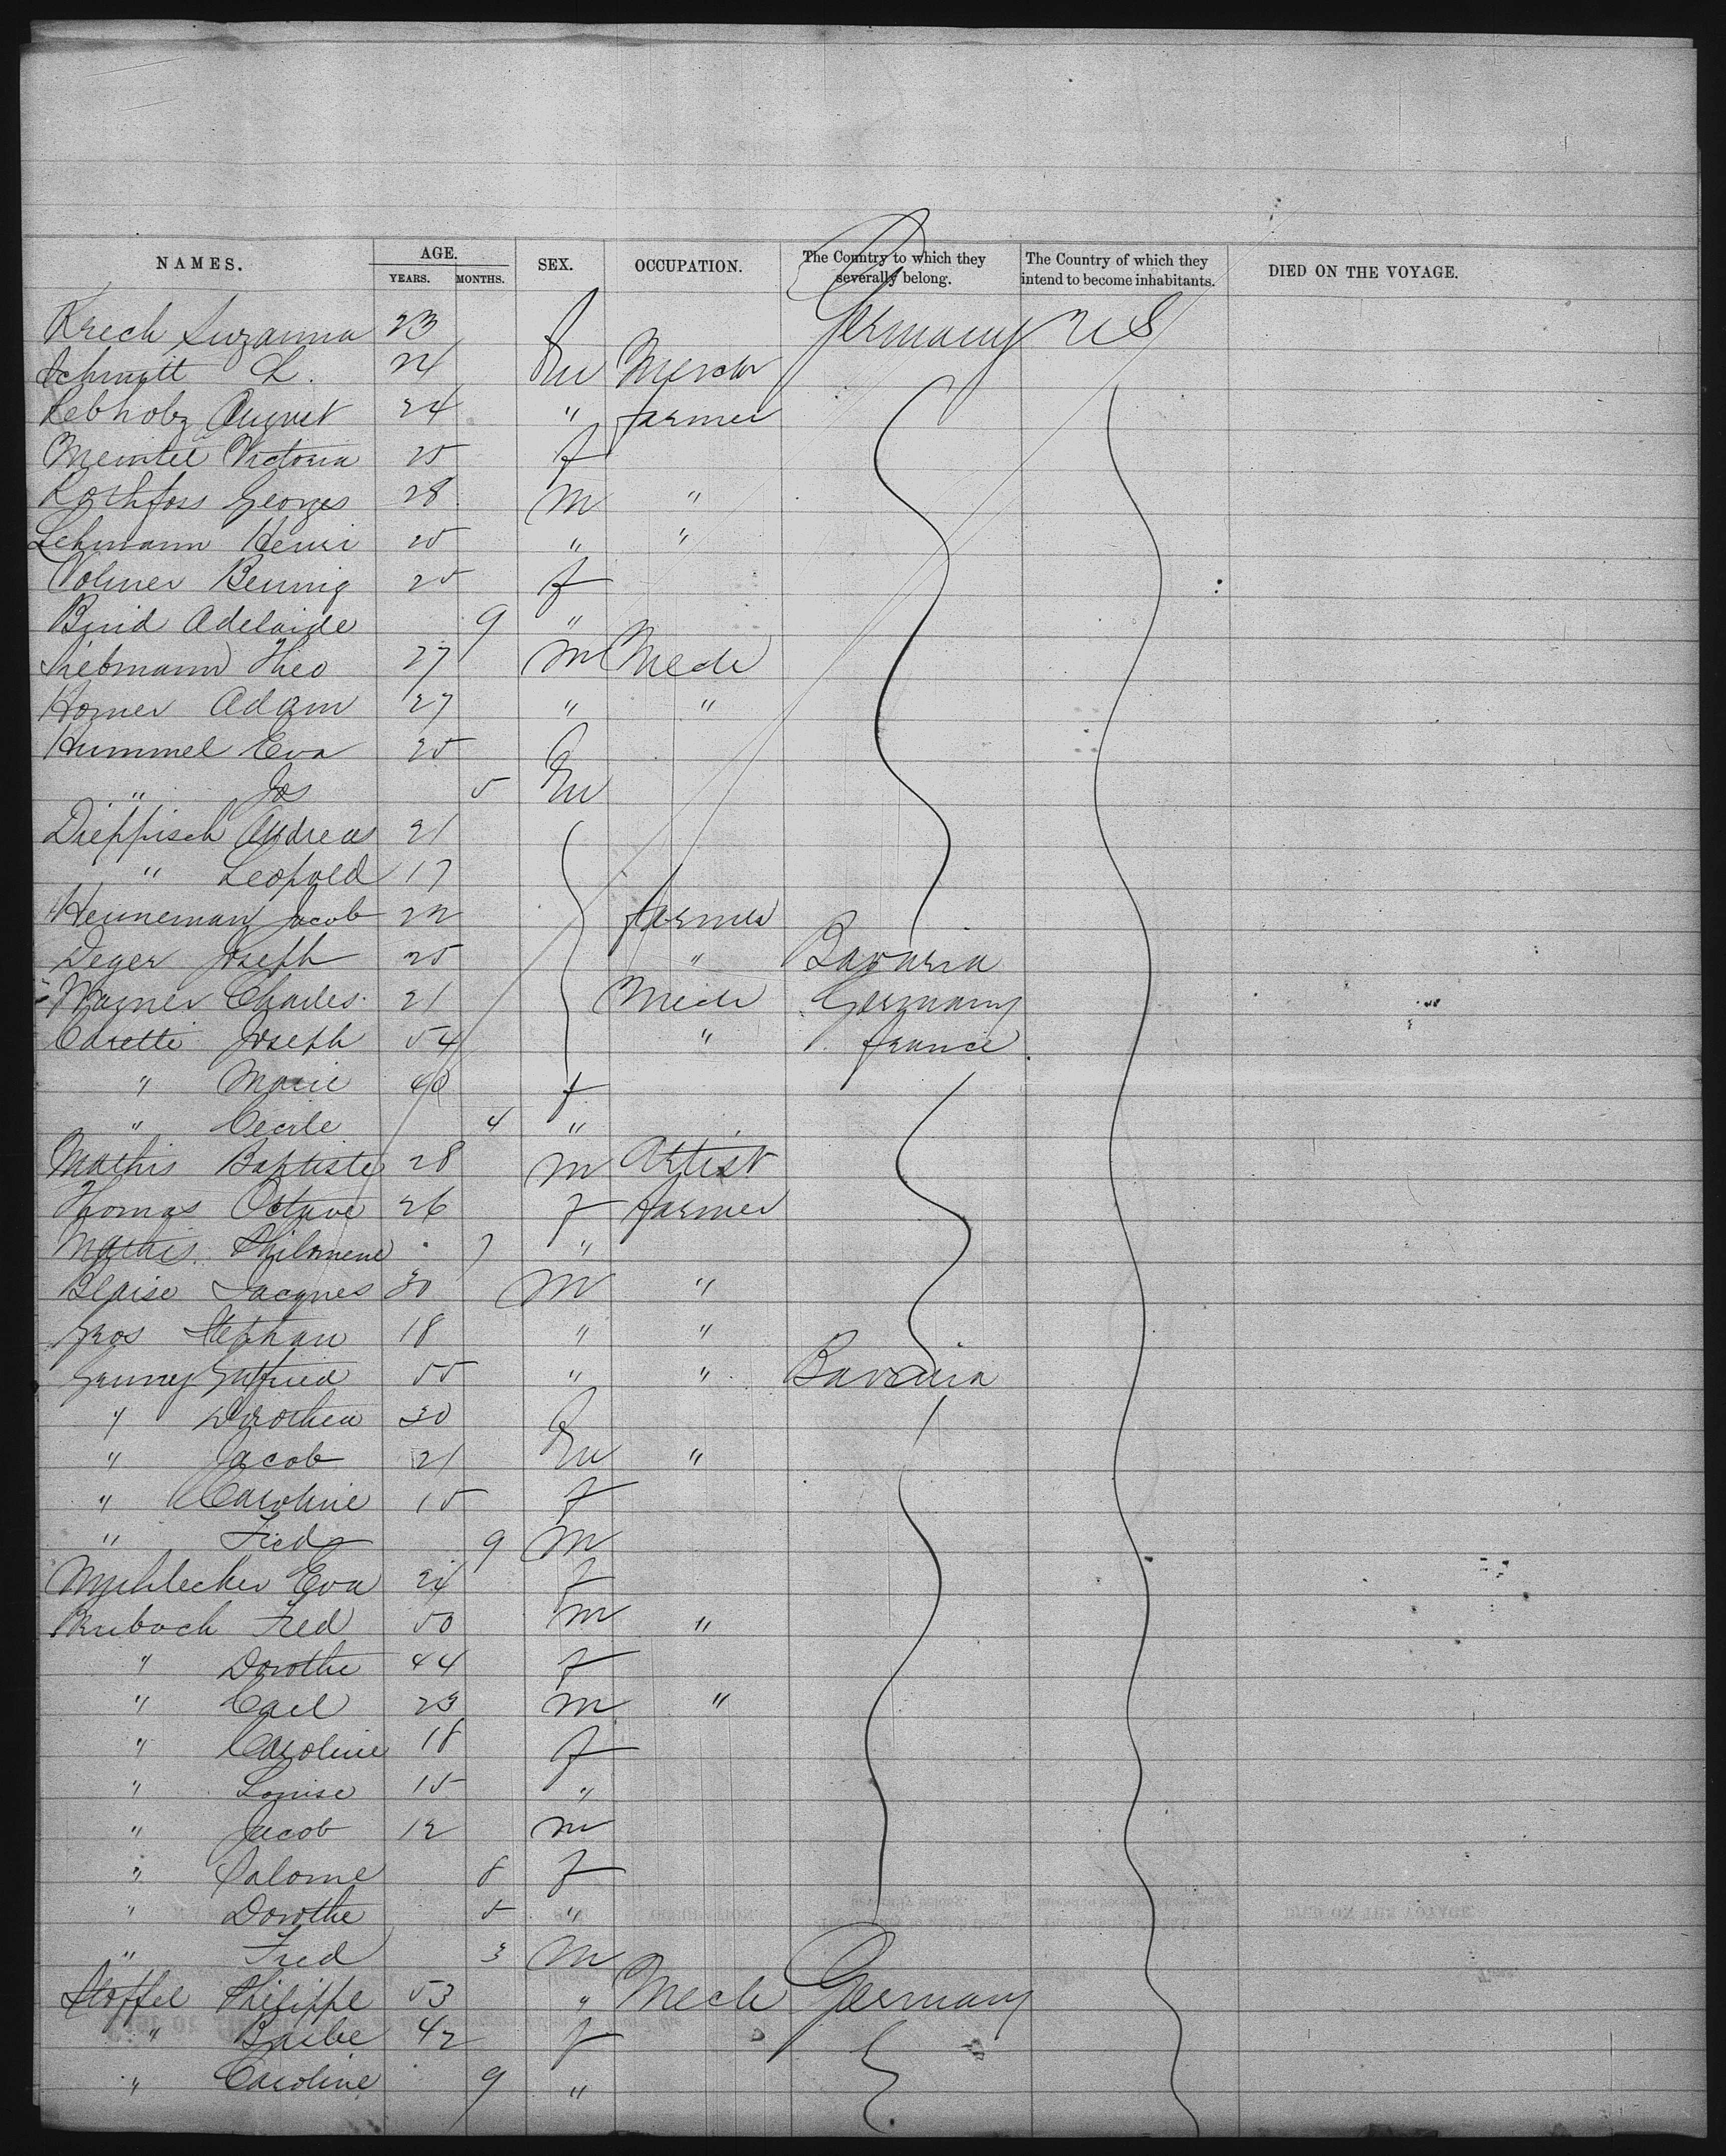 NAMES. AGE. SEX. OCCUPATION. The Country to which they severally belong. The Country of which they intend to become inhabitants. DIED ON THE VOYAGE.
YEARS. MONTHS.
Krech Suzanna 23 f Germany U S
Schmitt L. 24 m
Rebholz August 24 " farmer
Victoria 25 f
Rothfoss Georges 28 m "
Lehmann Henri 25 " "
Volmer 25 f
Adelaide 9 "
Liebmann Theo 27 m Mech
Horner Adam 27 " "
Hummel Eva 25 f
" Jos 5 m
Dieppisch Andreas 21
" Leopold 17
Henneman Jacob 22 farmer
Deger Joseph 25 " Bavaria
Wagner Charles 21 Mech Germany
Caretti Joseph 54 " france
" Marie 40 f
" Cecile 4 "
Mathis Baptiste 28 m Artist
Thomas Octave 26 f farmer
Mathis Philomene 7 "
Blaise Jacques 30 m "
Gros Stephan 18 " "
55 " " Bavaria
" Dorothea 30 f
" Jacob 21 m "
" Caroline 15 f
" Fred 9 m
Eva 24 f
Fred 50 m "
" Dorothe 44 f
" Carl 23 m "
" Caroline 18 f
" Louise 15 "
" Jacob 12 m
" Salome 8 f
" Dorothe 5 "
" Fred 3 m
Stoffel Philippe 53 " Mech Germany
" Barbe 42 f
" Caroline 9 "